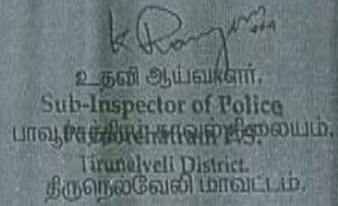 உதவி ஆய்வாளர்,
Sub-Inspector of Police
பாவூர்சத்திரம் காவல் நிலையம்.
Tirunelveli District.
திருநெல்வேலி மாவட்டம்.